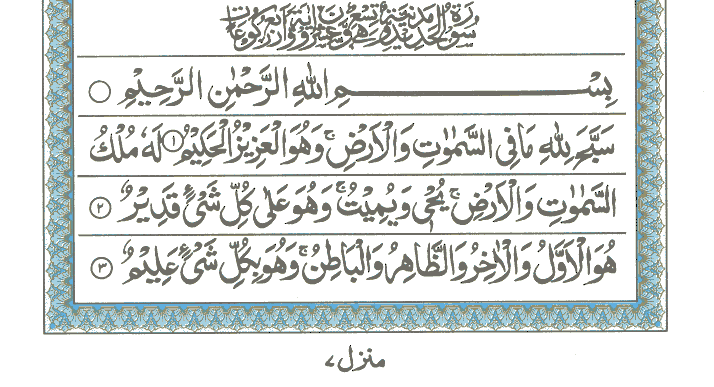 سُوْرَةُ الْحَدِيْدِ مَدَنِيَّةٌ وَّهِيَ تِسْعٌ وَّعِشْرُوْنَ اٰيَةً وَّاَرْبَعُ رُكُوْعَاتٍ
بِسْمِ اللّٰهِ الرَّحْمٰنِ الرَّحِيْمِ ○
سَبَّحَ لِلّٰهِ مَا فِي السَّمٰوٰتِ وَالْاَرْضِ ۚ وَهُوَ الْعَزِيْزُ الْحَكِيْمُ ۱ لَهٗ مُلْكُ
السَّمٰوٰتِ وَالْاَرْضِ ۚ يُحْيٖ وَيُمِيْتُ ۚ وَهُوَ عَلٰى كُلِّ شَيْءٍ قَدِيْرٌ ۲
هُوَ الْاَوَّلُ وَالْاٰخِرُ وَالظَّاهِرُ وَالْبَاطِنُ ۚ وَهُوَ بِكُلِّ شَيْءٍ عَلِيْمٌ ۳
منزل ۷